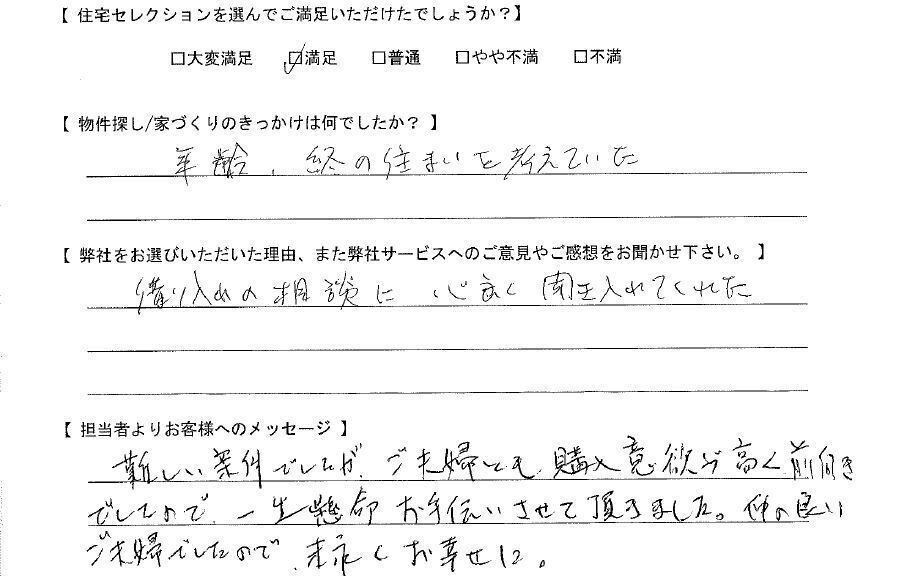 【 住宅セレクションを選んでご満足いただけたでしょうか?】
□大変満足 ☑満足 □普通 □やや不満 □不満
【 物件探し/家づくりのきっかけは何でしたか? 】
年齢、終の住まいを考えていた
【 弊社をお選びいただいた理由、また弊社サービスへのご意見やご感想をお聞かせ下さい。 】
借り入れの相談に 心良く 聞き入れてくれた
【 担当者よりお客様へのメッセージ 】
難しい案件でしたが、ご夫婦とも、購入意欲が高く前向き
でしたので、一生懸命お手伝いさせて頂きました。仲の良い
ご夫婦でしたので、末永くお幸せに。